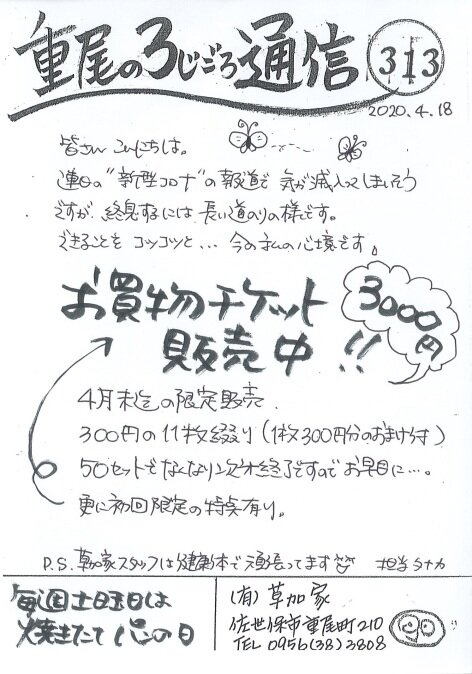 重尾の3じごろ通信 313
2020.4.18
皆さんこんにちは。
連日の"新型コロナ"の報道で気が滅入ってしまいそう
ですが、終息するには長い道のりの様です。
できることをコツコツと…今の私の心境です。
お買物チケット
販売中!!
3000円
4月末迄の限定販売.
300円の11枚綴り(1枚300円分のおまけ付)
50セットでなくなり次第終了ですのでお早目に…。
更に初回限定の特典有り。
P.S. 草加家スタッフは健康体で頑張ってます 担当タナカ
毎週土曜日は
焼きたてパンの日
(有)草加家
佐世保市重尾町210
TEL 0956(38)3808